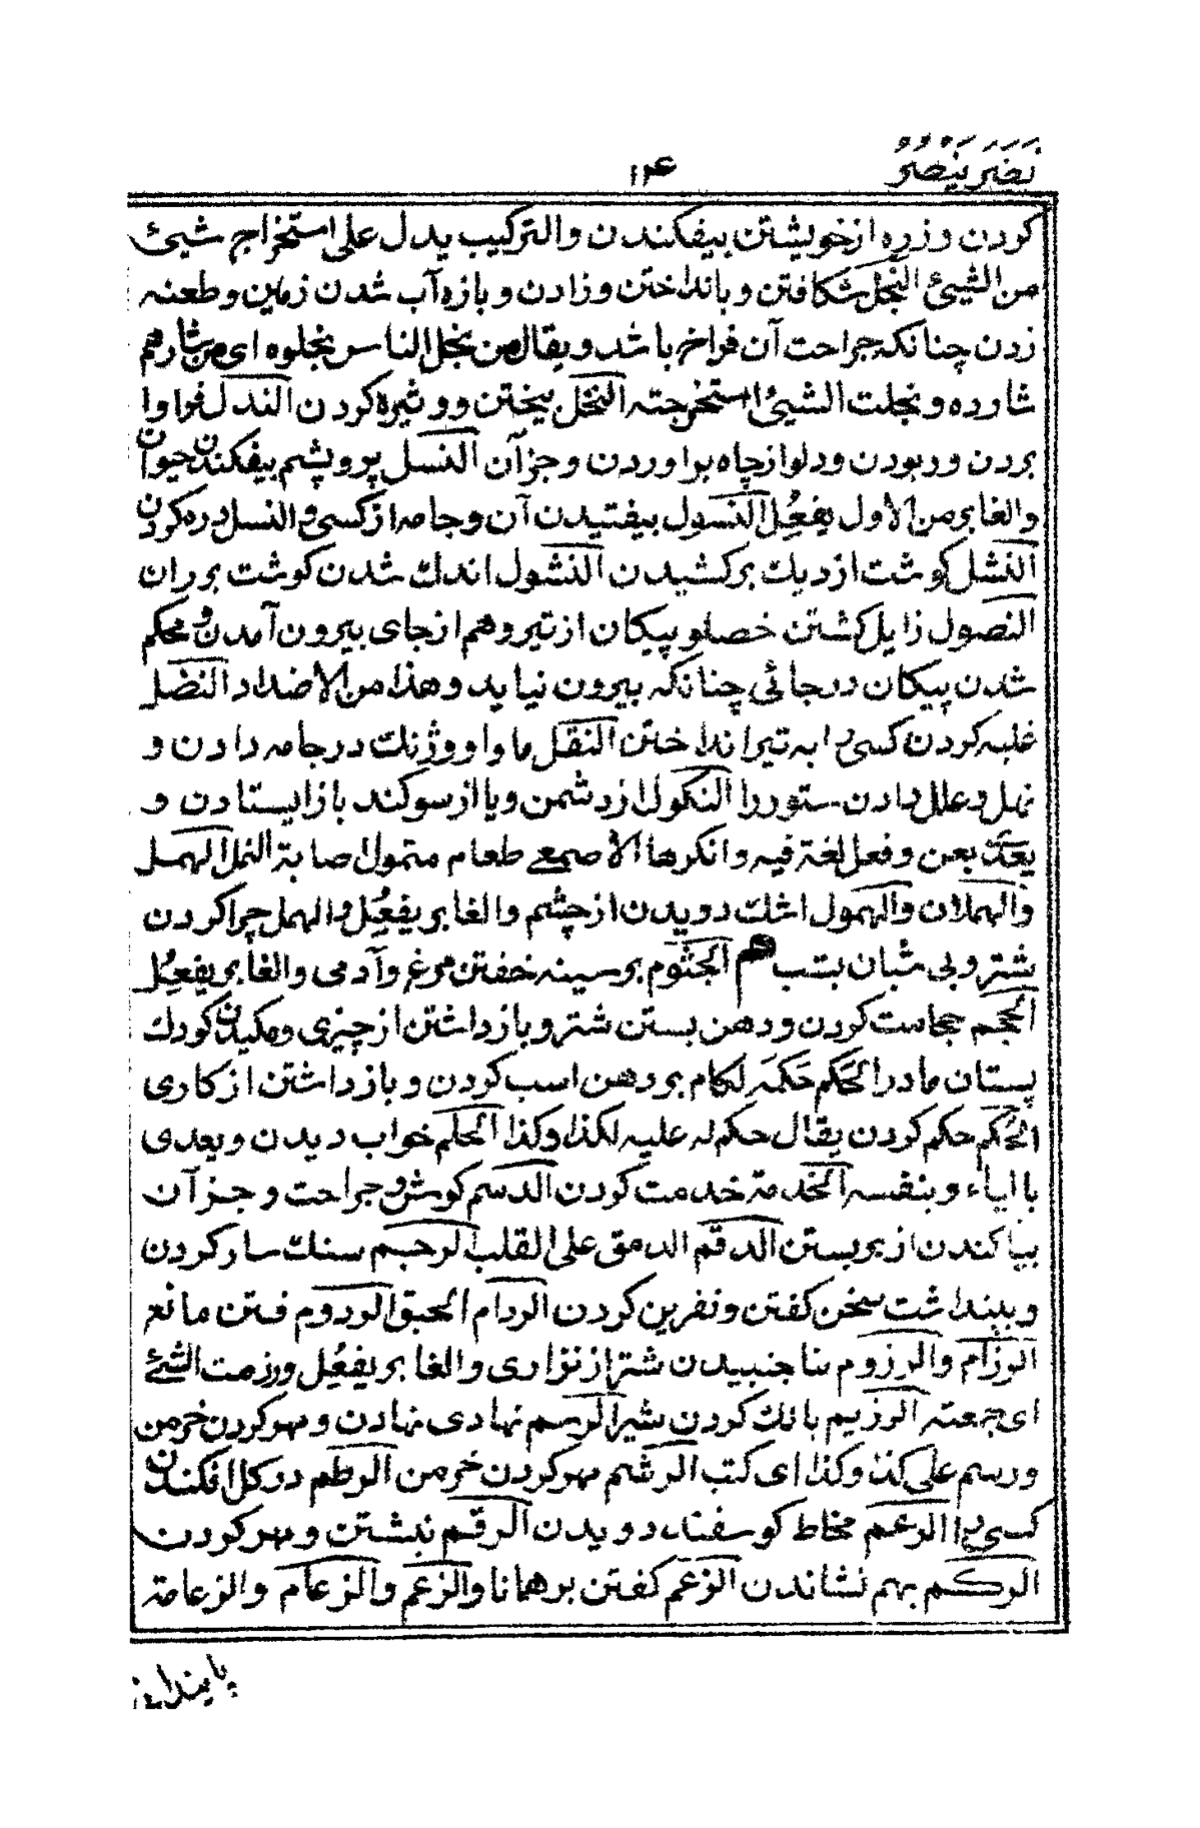 نَصَرَ يَنْصُرُ
۱۲۴
کردن و زره از خویشتن بیفکندن والترکیب یدل علی استخراج شیئ
من الشیئ النجل شکافتن و بانداختن و زادن و بازه آب شدن زمین و طعنه
زدن چنانکه جراحت آن فراخ باشد و یقال من نجل الناس نجلوه ای من شارهم
شاروه و نجلت الشیئ استخرجته النخل بیختن و و ثیره کردن الندل فراوا
بردن و ربودن و دلو از چاه براوردن و جز آن النسل پر و پشم بیفکندن حیوان
والغابر من الاول یفعُل النسول بیفتیدن آن و جامه از کسی و النسل دره کردن
النشل کوشت از دیك برکشیدن النشول اندك شدن کوشت بر ران
النصول زایل کشتن خصاب و پیکان از تیر و هم از جای بیرون آمدن و محکم
شدن پیکان در جائی چنانکه بیرون نیاید و هذا من الاضداد النضل
غلبه کردن کسی را به تیر انداختن النقل ما وا و وژنك در جامه دادن و
نهل و علل دادن ستور را النکول از دشمن و یا از سوکند باز ایستادن و
یعدّی بعن و فعل لغة فیه و انکرها الاصمعی طعام متمول اصابة النمل الهمل
والهملان والهمول اشك دویدن از چشم والغابر یفعُل والهمل چرا کردن
شتر و بی شبان بشب هم الجثوم بر سینه خفتن مرغ و آدمی والغابر یفعِل
الحجم حجامت کردن و دهن بستن شتر و باز داشتن از چیزی و مکیدن کودك
پستان مادر الحَکم حَکمَه لکام بر دهن اسب کردن و باز داشتن از کاری
الحُکم حکم کردن یقال حکم له علیه لکذا و کذا الحلم خواب دیدن و یعدی
بالباء و بنفسه الخدمة خدمت کردن الدسم کوش و جراحت و جز آن
بیاکندن از بر بستن الدقم الدمق علی القلب الرجم سنك سار کردن
و بپنداشت سخن کفتن و نفرین کردن الردام الحبق الردوم فتن مانه
الرزام والرزوم بنا جنبیدن شتر از نزاری والغابر یفعُل و رزمت الشئ
ای جمعته الرزیم بانك کردن شیر الرسم نهادی نهادن و مهر کردن خرمن
و رسم علی کذا و کذا ای کتب الرشم مهر کردن خرمن الرطم در کل افکندن
کسی را الرعم مخاط کوسفند دویدن الرقم نبشتن و مهر کردن
الرکم بهم نشاندن الزعم کفتن برهانا والزعم والزعام والزعامة
پایندانی